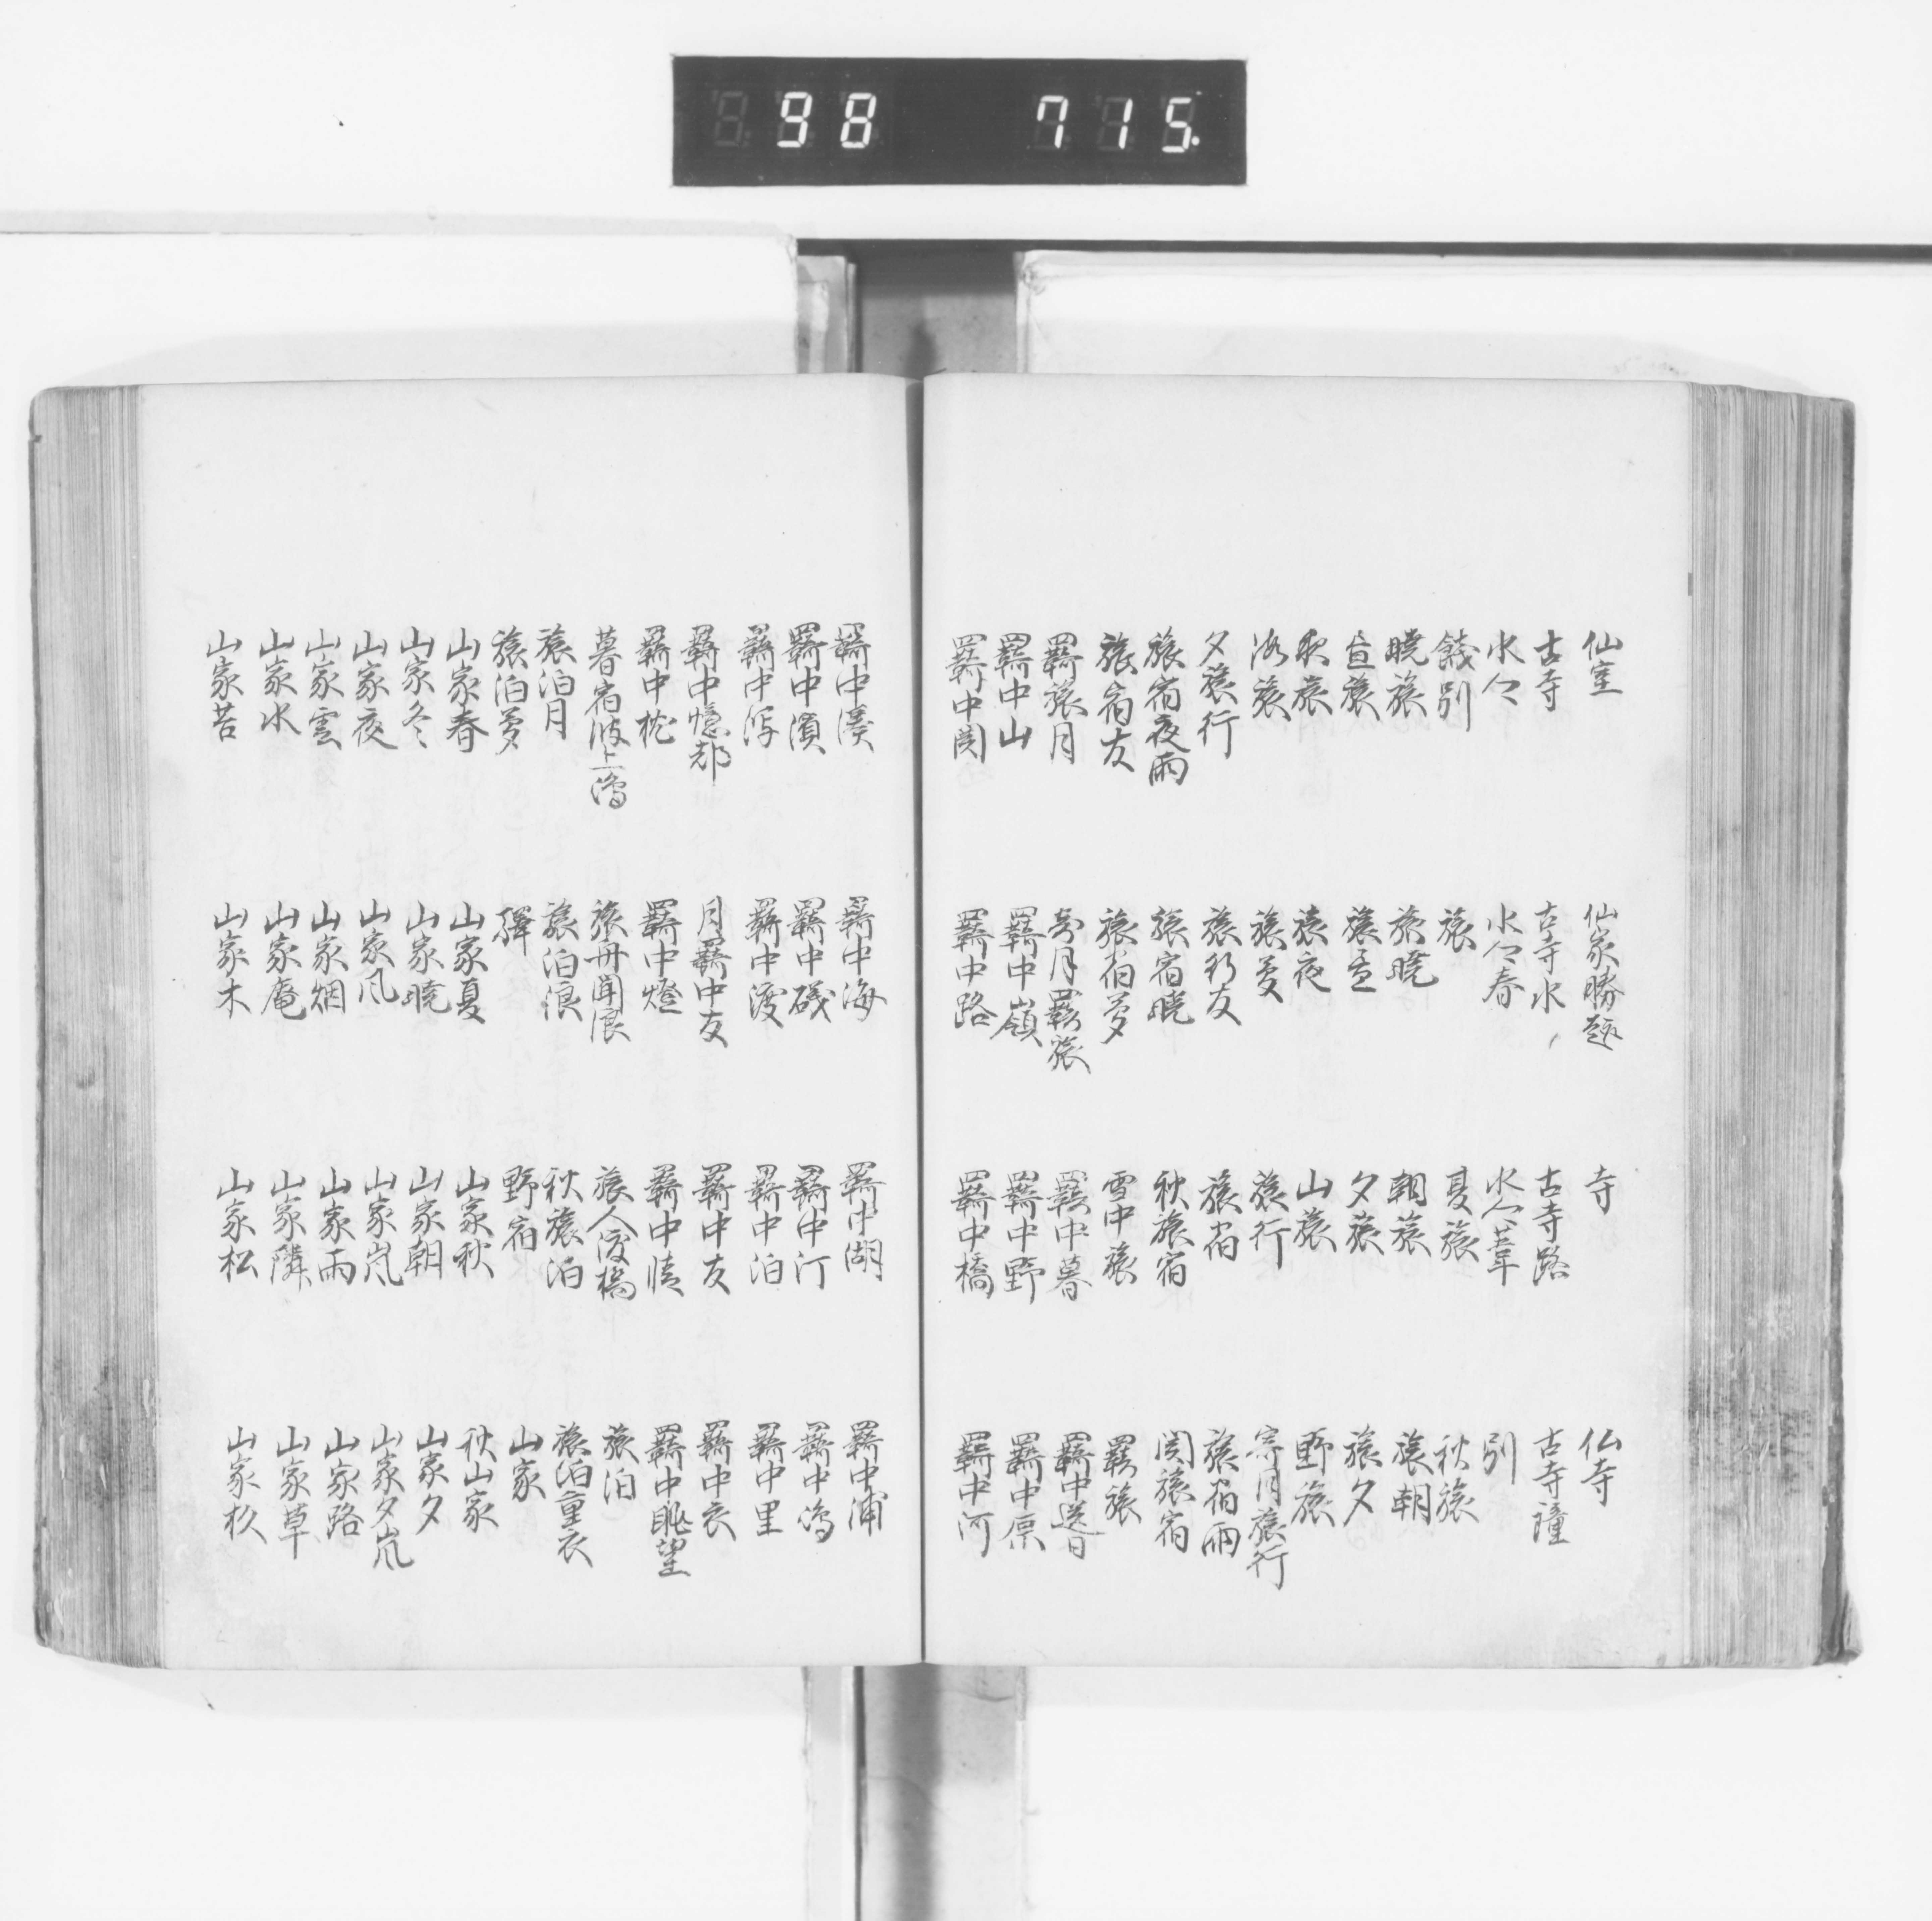 98 715.
仙室 仙家勝趣 寺 仏寺
古寺 古寺水 古寺路 古寺鐘
水々 水々春 水々葦 別
餞別 旅 夏旅 秋旅
暁旅 旅暁 朝旅 旅朝
昼旅 旅昼 夕旅 旅夕
夜旅 旅夜 山旅 野旅
海旅 旅友 旅行 寄月旅行
夕旅行 旅行友 旅宿 旅宿雨
旅宿夜雨 旅宿暁 秋旅宿 関旅宿
旅宿友 旅宿夢 雪中旅 羇旅
羇旅月 寄月羇旅 羇中暮 羇中送日
羇中山 羇中嶺 羇中野 羇中原
羇中関 羇中路 羇中橋 羇中河
羇中湊 羇中海 羇中湖 羇中浦
羇中濱 羇中磯 羇中汀 羇中嶋
羇中渡 羇中泊 羇中里
羇中憶都 月羇中友 羇中友 羇中衣
羇中枕 羇中燈 羇中情 羇中眺望
暮宿波上嶋 旅舟聞浪 旅人渡橋 旅泊
旅泊月 旅泊浪 秋旅泊 旅泊重衣
旅泊夢 驛 野宿 山家
山家春 山家夏 山家秋 秋山家
山家冬 山家暁 山家朝 山家夕
山家夜 山家風 山家嵐 山家夕嵐
山家雲 山家烟 山家雨 山家路
山家水 山家庵 山家隣 山家草
山家苔 山家木 山家松 山家杉